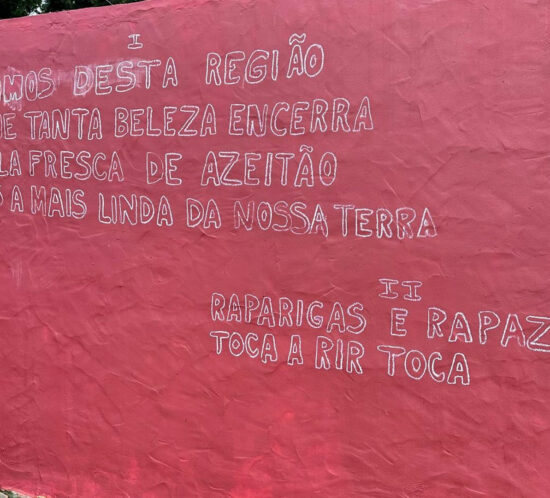 I
OMOS DESTA REGIÃO
E TANTA BELEZA ENCERRA
LA FRESCA DE AZEITÃO
A MAIS LINDA DA NOSSA TERRA
II
RAPARIGAS E RAPAZ
TOCA A RIR TOCA